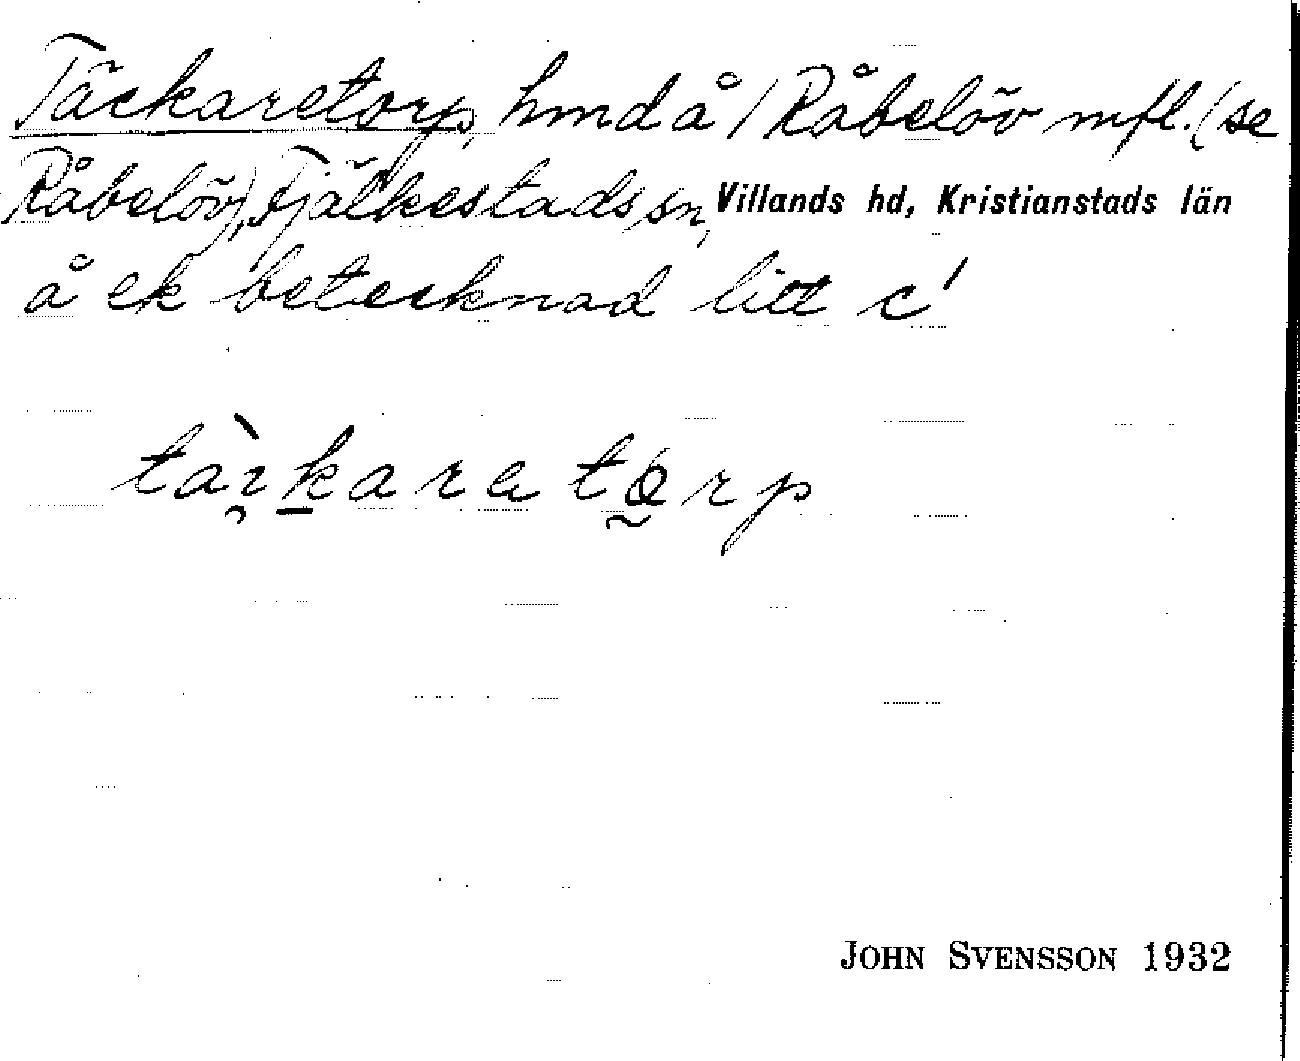 Täckaretorp, hmd å / Råbelöv mfl. (se
Råbelöv), Fjälkestads sn, Villands hd, Kristianstads län
å ek betecknad litt c'
JOHN SVENSSON 1932